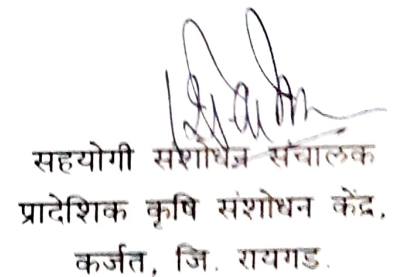 सहयोगी संशोधन संचालक
प्रादेशिक कृषि संशोधन केंद्र,
कर्जत, जि. रायगड.